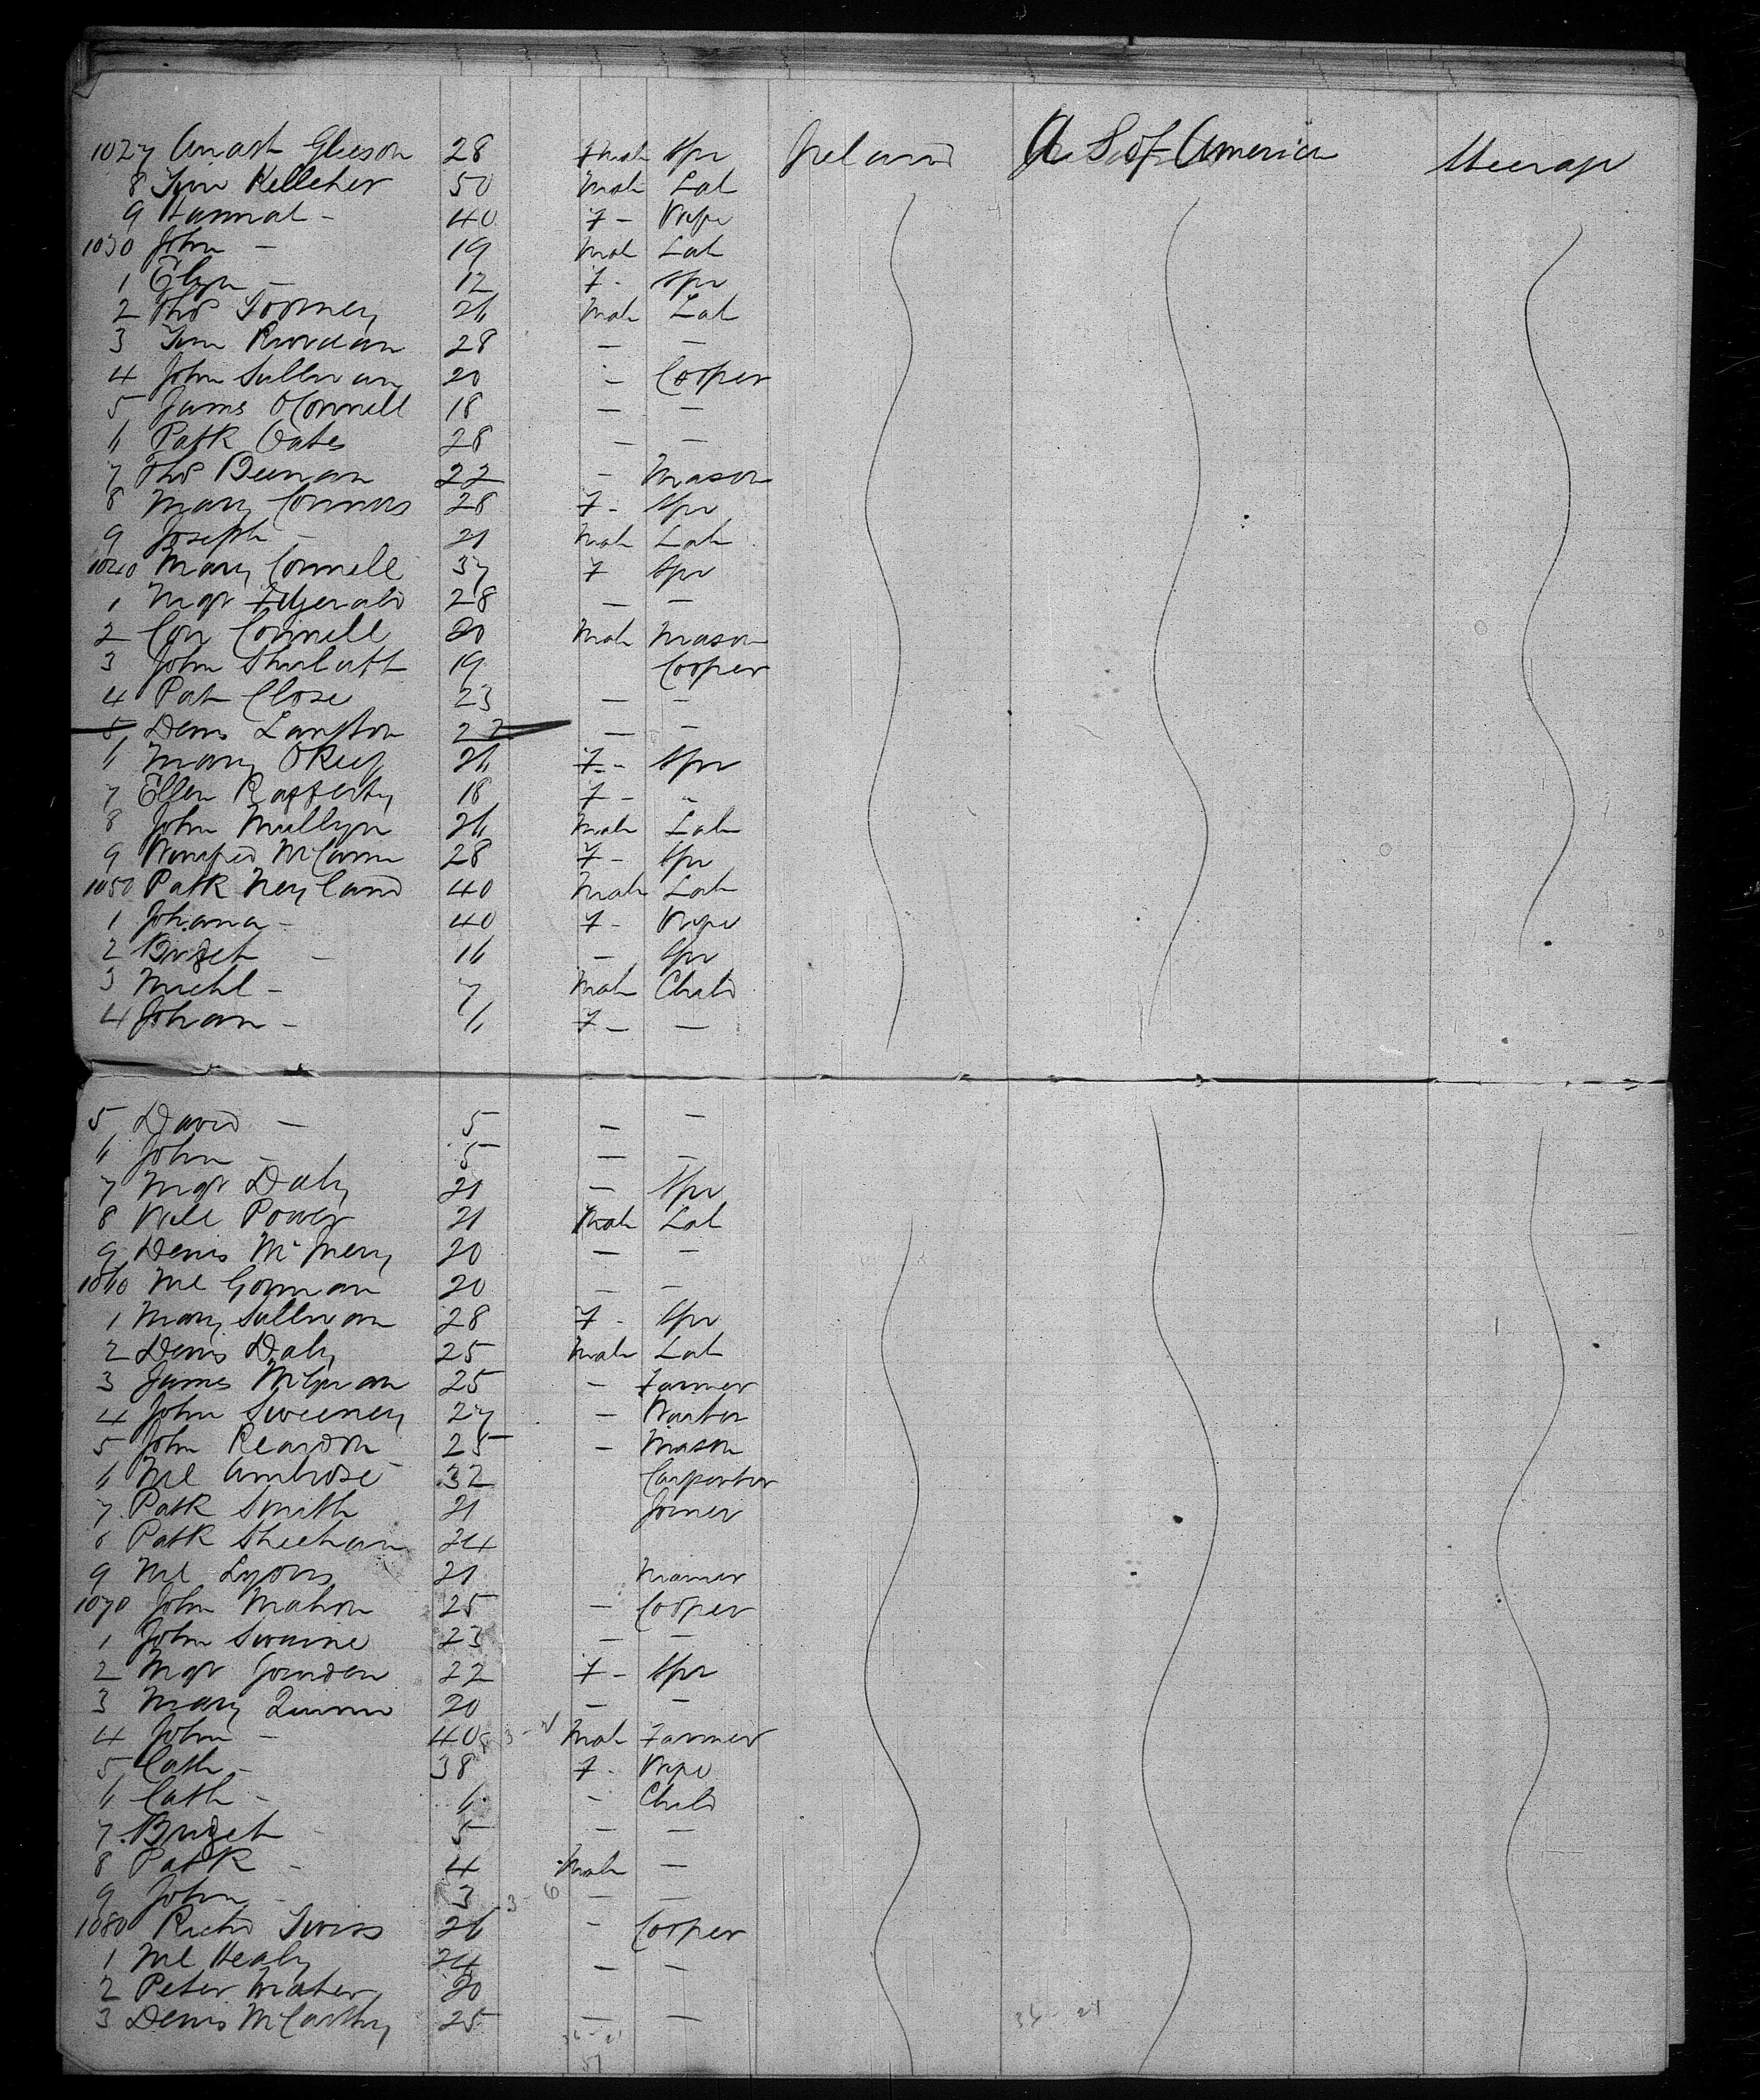 1027 Anast Gleeson 28 Fmale Spr Ireland U S of America Steerage
8 Tim Kelleher 50 Male Lab
9 Hannah - 40 F - Wife
1030 John - 19 Male Lab
1 - 12 F - Spr
2 Thos Toomey 26 Male Lab
3 Tim Riordan 28 — —
4 John Sullivan 20 - Cooper
5 James OConnell 18 — —
6 Patk Oates 28 — —
7 Thos 22 - Mason
8 Mary Connors 28 F - Spr
9 Joseph - 21 Male Lab
1040 Mary Connell 37 F Spr
1 Mgt Fitzgerald 28 — —
2 Con Connell 20 Male Mason
3 John 19 Cooper
4 Pat Close 23 — —
5 Denis Langton 22 — —
6 Mary OKeefe 26 F - Spr
7 Ellen Rafferty 18 F - -
8 John 26 Male Lab
9 Winifred McCann 28 F - Spr
1050 Patk Neyland 40 Male Lab
1 Johana - 40 F - Wife
2 Bridget - 16 — Spr
3 Michl - 7 Male Child
4 Johan - 6 F - —
5 David - 5 — —
6 John - 5 — —
7 Mgt Daly 21 — Spr
8 Will Power 21 Male Lab
9 Denis 20 — —
1060 Ml Gorman 20 — —
1 Mary Sullivan 28 F - Spr
2 Denis Daly 25 Male Lab
3 James 25 - Farmer
4 John Sweeney 27 -
5 John Reardon 25 - Mason
6 Ml Ambrose 32 Carpenter
7 Patk Smith 21 Joiner
8 Patk Sheehan 24
9 Ml Lyons 21
1070 John Mahon 25 - Cooper
1 John Swaine 23 — —
2 Mgt 22 F - Spr
3 Mary Quinn 20 — —
4 John - 40 Male Farmer
5 Cath - 38 F - Wife
6 Cath - 6 - Child
7 Bridget - 5 — —
8 Patk - 4 Male —
9 John - 3 — —
1080 Richd Twiss 26 - Cooper
1 Ml Healy 24 — —
2 Peter Maher 20
3 Denis McCarthy 25 — —